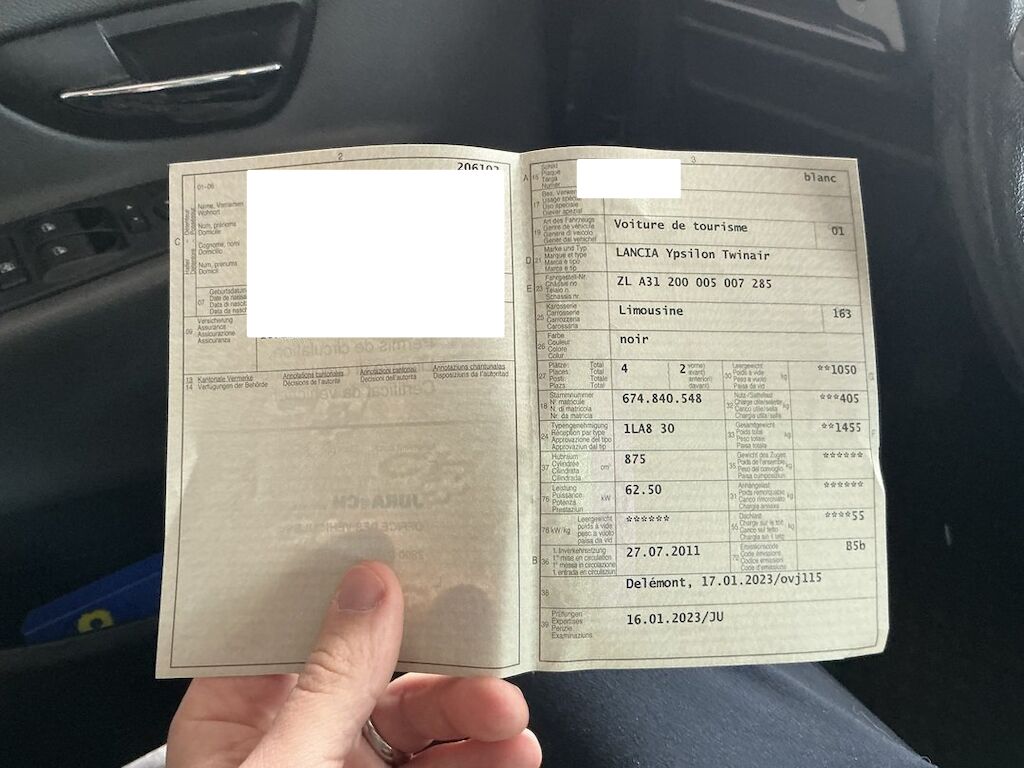 2
206102
01-06
Name, Vornamen
Wohnort
Nom, prénoms
Domicile
Cognome, nomi
Domicilio
Num, prenums
Domicil
C
07
Geburtsdatum
Date de
Data di
Data da
09
Versicherung
Assurance
Assicurazione
Assicuranza
13 Kantonale Vermerke
14 Verfügungen der Behörde
Annotations cantonales
Décisions de l'autorité
Annotazioni cantonali
Decisioni dell'autorità
Annotaziuns chantunalas
Disposiziuns da l'autoritad
3
A 15
Schild
Plaque
Targa
Numer
blanc
17
19
Art des Fahrzeugs
Genre de véhicule
Genere di veicolo
Gener dal vehichel
Voiture de tourisme
01
D 21
Marke und Typ
Marque et type
Marca e tipo
Marca e tip
LANCIA Ypsilon Twinair
E 23
Fahrgestell-Nr.
Châssis no
Telaio n.
Schassis nr.
ZL A31 200 005 007 285
25
Karosserie
Carrosserie
Carrozzeria
Carossaria
Limousine
163
26
Farbe
Couleur
Colore
Colur
noir
27
Plätze: Total
Places: Total
Posti: Totale
Plazs: Total
4
2
vorne)
avant)
anteriori)
davant)
30
Leergewicht
Poids à vide
Peso a vuoto
Paisa da vid
kg
**1050
G
18
Stammnummer
N° matricule
N. di matricola
Nr. da matricla
674.840.548
32
Nutz-/Sattellast
kg
***405
24
Typengenehmigung
Réception par type
Approvazione del tipo
Approvaziun dal tip
1LA8 30
33
Gesamtgewicht
Poids total
Peso totale
Paisa totala
kg
**1455
F
37
Hubraum
Cylindrée
Cilindrata
Cilindrada
cm³
875
35
Gewicht des Zuges
Poids de l'ensemble
Peso del convoglio
Paisa cumposiziun
kg
******
76
Leistung
Puissance
Potenza
Prestaziun
kW
62.50
31
Anhängelast
kg
******
78 kW/kg
Leergewicht
poids à vide
peso a vuoto
paisa da vid
******
55
Dachlast
Charge sur le toit
Carico sul tetto
kg
****55
B 36
1. Inverkehrsetzung
1re mise en circulation
1a messa in circolazione
1. entrada en circulaziun
27.07.2011
72
Emissionscode
Code émissions
Codice emissioni
Code d'emissiuns
B5b
38
Delémont, 17.01.2023/ovj115
39
Prüfungen
Expertises
Perizie
Examinaziuns
16.01.2023/JU